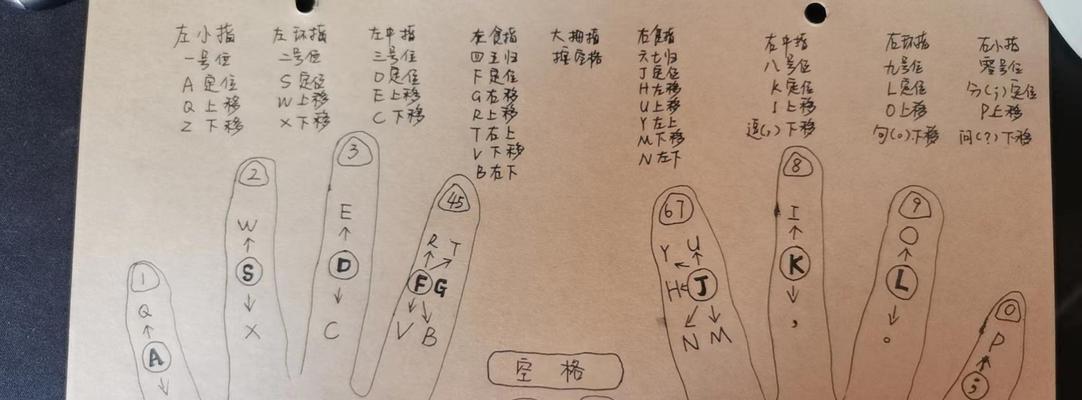 左小指
一号位
A 定位
Q 上移
Z 下移
左环指
二号位
S 定位
W 上移
X 下移
左中指
三号位
D 定位
E 上移
C 下移
左食指
四五归
F 定位
G 右移
R 上移
T 右上
V 下移
B 右下
大拇指
摁空格
右食指
六七归
J 定位
H 左移
U 上移
Y 左上
M 下移
N 左下
右中指
八号位
K 定位
I 上移
逗(,) 下移
右环指
九号位
L 定位
O 上移
句(。) 下移
右小指
零号位
分(;) 定位
P 上移
问(?) 下移
1
Q
A
2
W
S
X
3
E
D
C
45
R T
F G
V B
67
Y U
H J
N M
8
I
K
,
9
O
L
。
0
P
;
空 格